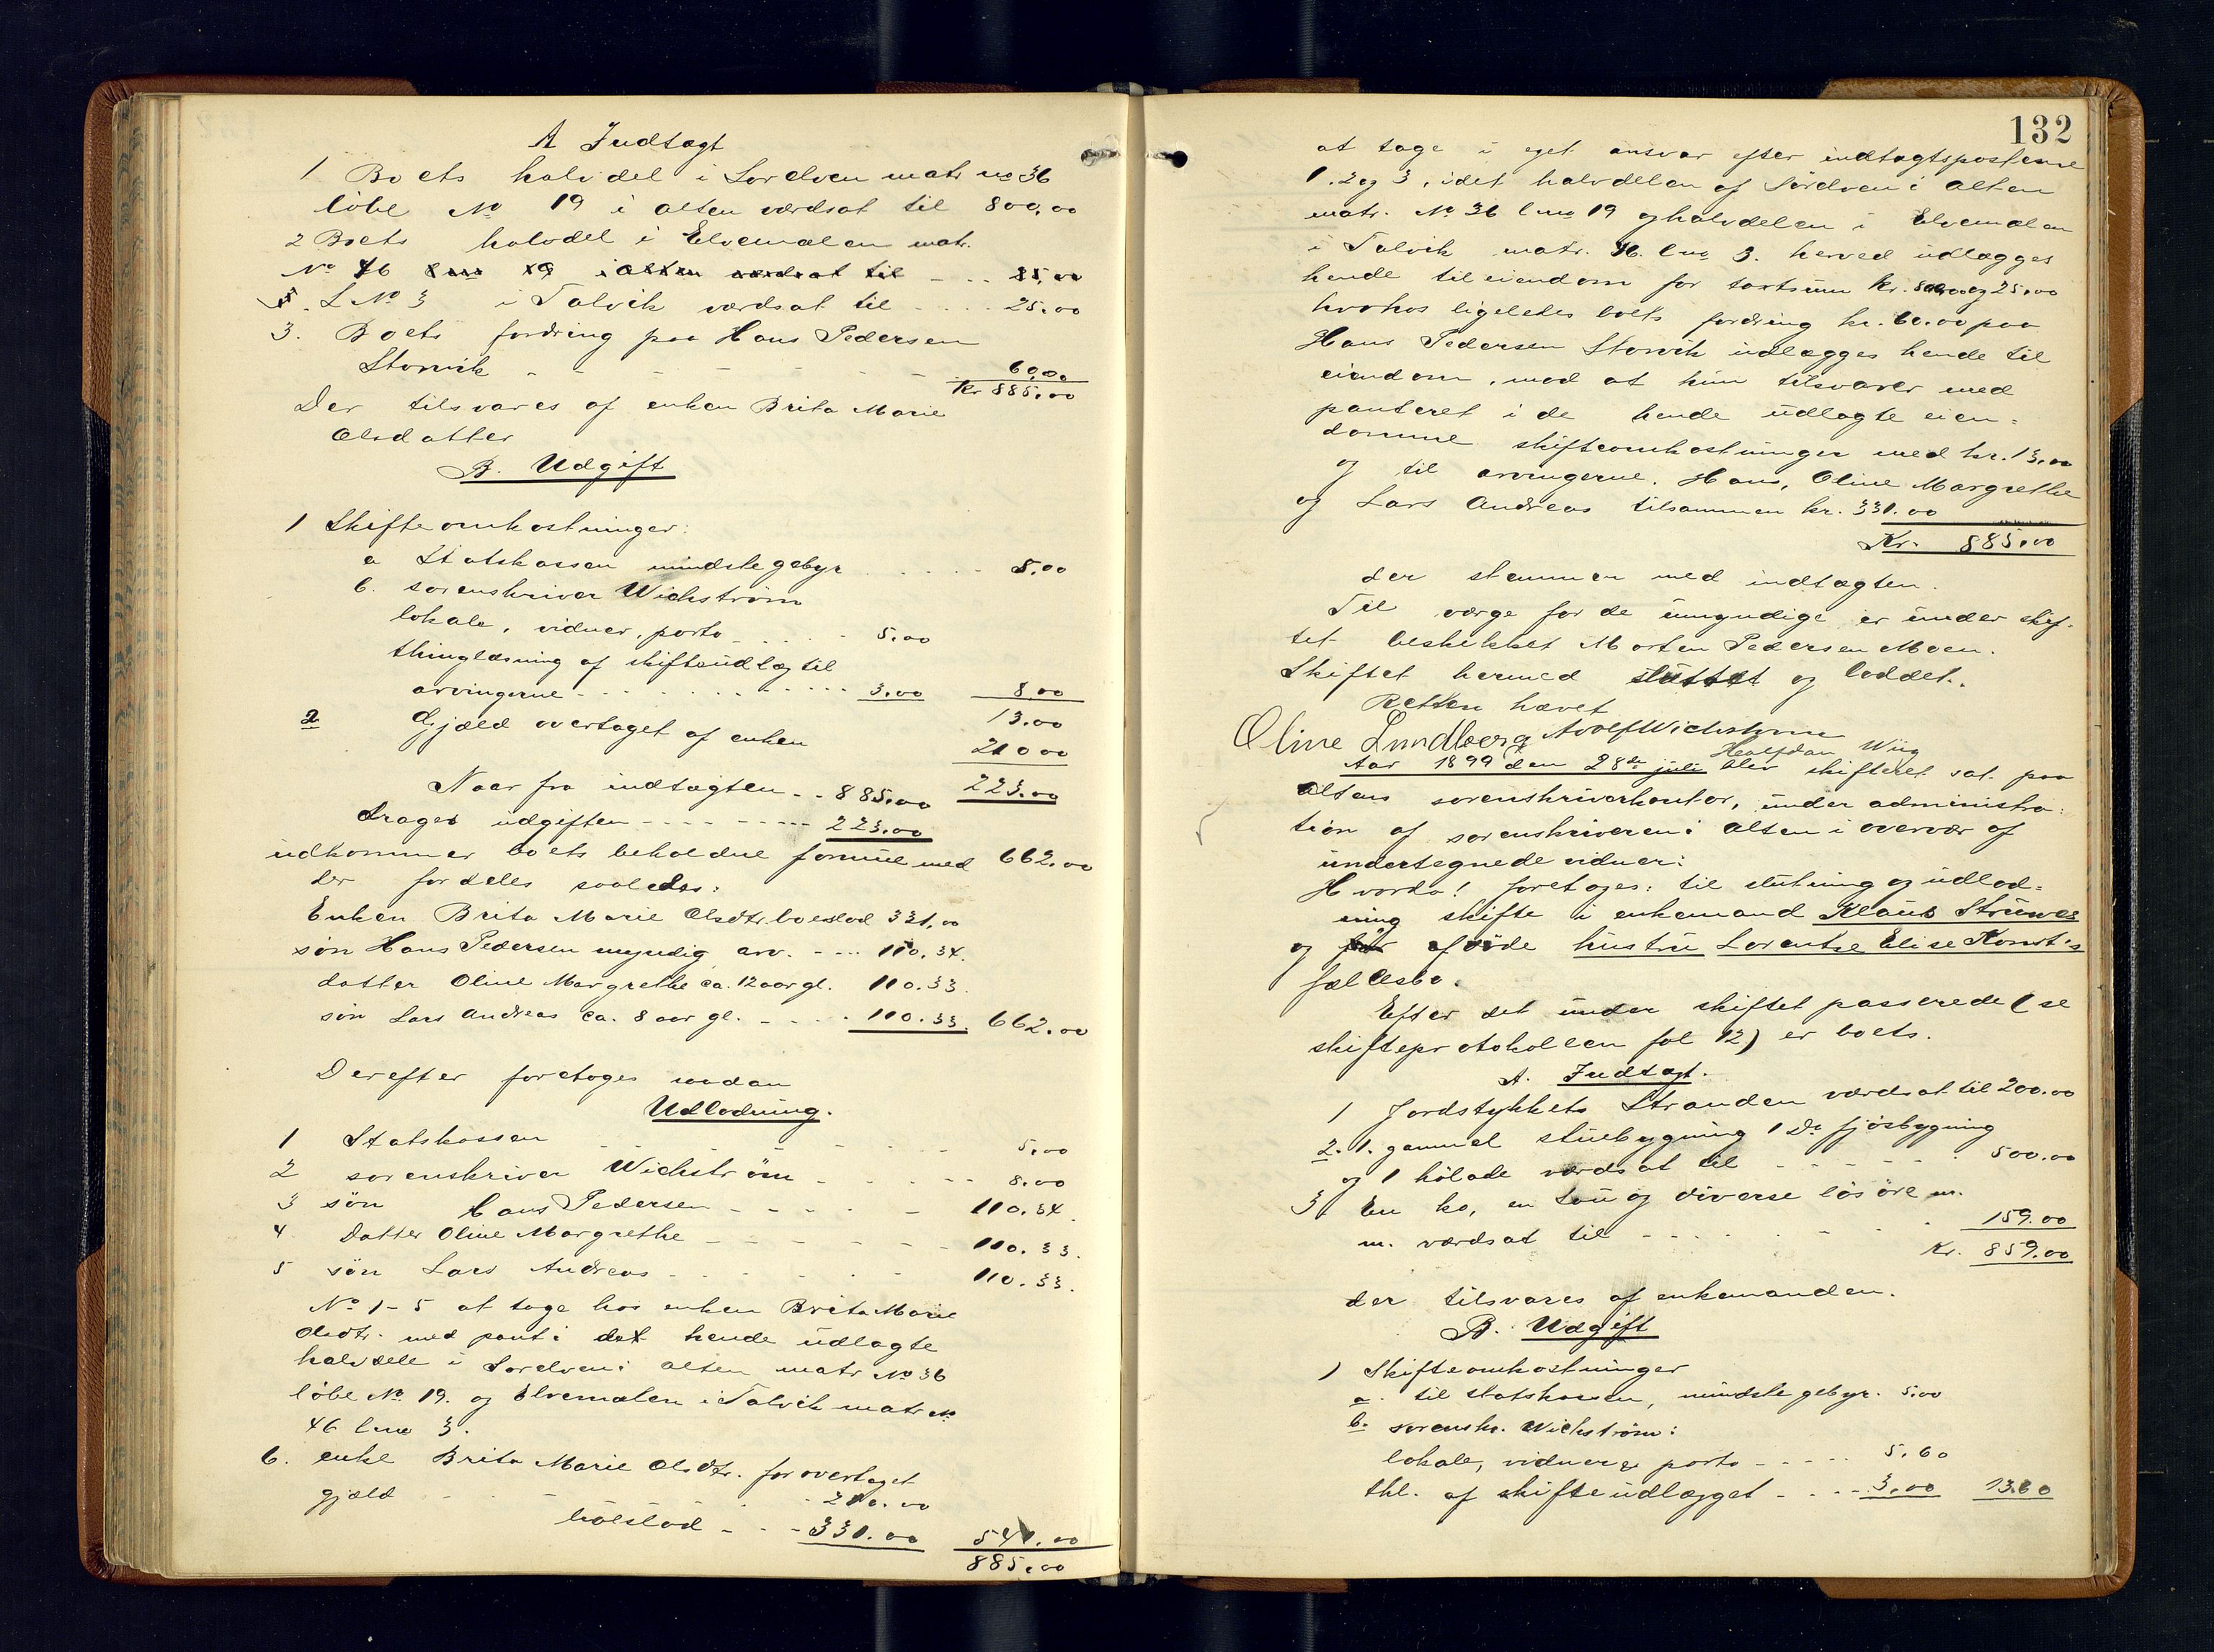 A Indtægt
1 Boets halvdel i Sorelven matr no 36
löbe No 19 i Alten værdsat til 800,00
2 Boets halvdel i Elvemælen matr.
No 46 lno 19 i Alten værdsat til - .. 25,00
L No 3 i Talvik værdsat til .... 25.00
3. Boets fordring paa Hans Pedersen
Storvik - - - - - - 60,00
Kr 885.00
Der tilsvares af enken Brita Marie
Olsdatter
B. Udgift
1 Skifteomkostninger:
a Statskassen mindstegebyr ..... 5.00
b. sorenskriver Wichström
lokale, vidner, porto - . . . - 5.00
thinglæsning af skifteudlæg til
arvingerne - - - - - - - 3.00 8 00
13.00
2 Gjæld overtaget af enken
210 00
223.00
Naar fra indtægten - - 885.00
drages udgiften - - - - - - - 223.00
udkommer boets beholdne formue med 662.00
der fordeles saaledes:
Enken Brita Marie Olsdtr. boeslod 331,00
sön Hans Pedersen myndig arv. - ... 110.34.
datter Oline Margrethe ca. 12 aar gl. 110.33.
sön Lars Andreas ca. 8 aar gl. - . . . 110.33. 662.00
Derefter foretoges saadan
Udlodning.
1 Statskassen - - - - - 5.00
2 sorenskriver Wichström - - - - - 8.00
3 sön Hans Pedersen - - - - - 110.34.
4 Datter Oline Margrethe - - - - - - 110.33.
5 sön Lars Andreas - - - - - - 110.33.
No 1-5 at tage hos enken Brita Marie
Olsdtr. med pant i det hende udlagte
halvdele i Sorelven i Alten matr No 36
löbe No 19. og Elvemælen i Talvik matr No
46 lno 3.
6. enke Brita Marie Olsdtr. for overtaget
gjæld - - - - 210.00
boeslod - - - 331.00 541.00
885.00
132
at tage i eget ansvar efter indtægtsposterne
1. 2 og 3, idet halvdelen af Sörelven i Alten
matr. No 36 lno 19 og halvdelen i Elvemælen
i Talvik matr. 46. lno 3. herved udlægges
hende til eiendom for taxtsum kr. 800.00 og 25.00
hvorhos ligeledes boets fordring kr. 60.00 paa
Hans Pedersen Storvik udlægges hende til
eiendom, mod at hun tilsvarer med
panteret i de hende udlagte eien-
domme skifteomkostninger med kr. 13.00
og til arvingerne. Hans, Oline Margrethe
og Lars Andreas tilsammen kr. 331.00
Kr. 885.00
der stemmer med indtægten.
Til værge for de umyndige er under skif-
tet beskikket Morten Pedersen Moen.
Skiftet hermed sluttet og loddet.
Retten hævet
Oline Lundberg Adolf Wichstrøm
Halfdan Wiig
Aar 1899 den 28de juli blev skifteret sat paa
Altens sorenskriverkontor, under administra-
tion af sorenskriveren i Alten i overvær af
undertegnede vidner:
Hvorda! foretoges: til slutning og udlod-
ning skifte i enkemand Klaus Strüwes
og afdöde hustru Lorentze Elise Konst's
fællesbo.
Efter det under skiftet passerede (se
skifteprotokollen fol 12) er boets.
A. Indtægt.
1 Jordstykkets Stranden værdsat til 200.00
2. 1. gammel stuebygning 1 Do fjösbygning
og 1 hölade værdsat til - - - - - - 500.00
3 En ko, en sau og diverse lösöre m.
m. værdsat til - - . . . - - 159.00
Kr. 859.00
der tilsvares af enkemanden.
B. Udgift
1 Skifteomkostninger
a. til statskassen, mindstegebyr. 5.00
b. sorenskr. Wichström:
lokale, vidner & porto - - - - - 5.60
thl. af skifteudlægget - . . - 3.00 13.60